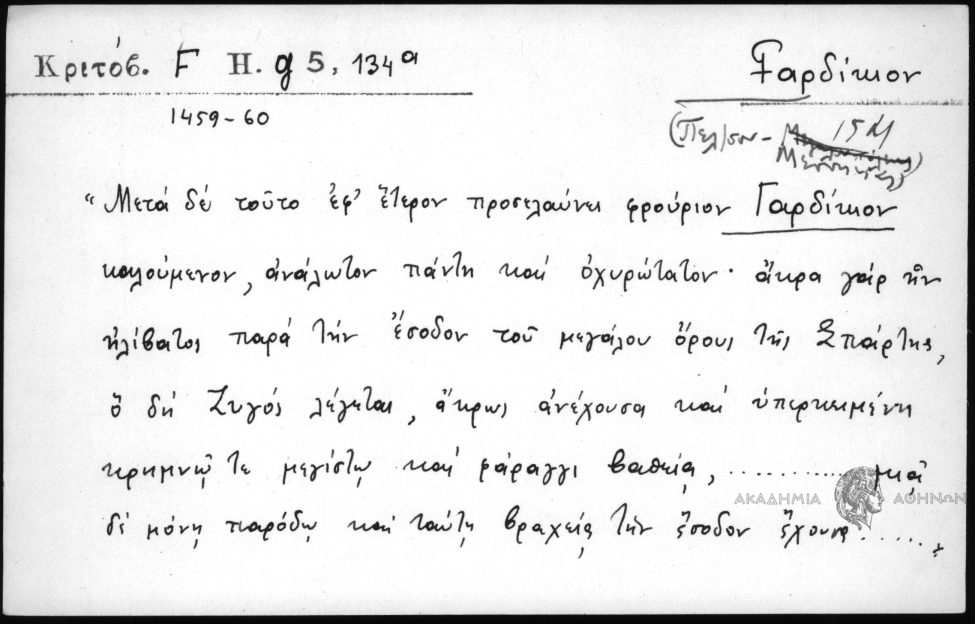 Κριτόβ. F H. g 5, 134α
Γαρδίκιον
1459-60
(Πελ/σου - 15 Μ
Μεσσηνίας)
"Μετά δέ τοῦτο ἐφ' ἕτερον προσελαύνει φρούριον Γαρδίκιον
καλούμενον, ἀνάλωτον πάντη καί ὀχυρώτατον· ἄκρα γάρ ἦν
ἠλίβατος παρά τήν ἔσοδον τοῦ μεγάλου ὄρους τῆς Σπάρτης,
ὅ δή Ζυγός λέγεται, ἄκρως ἀνέχουσα καί ὑπερκειμένη
κρημνῷ τε μεγίστῳ καί φάραγγι βαθείᾳ, .......... μιᾷ
δέ μόνῃ παρόδῳ καί ταύτῃ βραχείᾳ τήν ἔσοδον ἔχουσα ......
ΑΚΑΔΗΜΙΑ ΑΘΗΝΩΝ